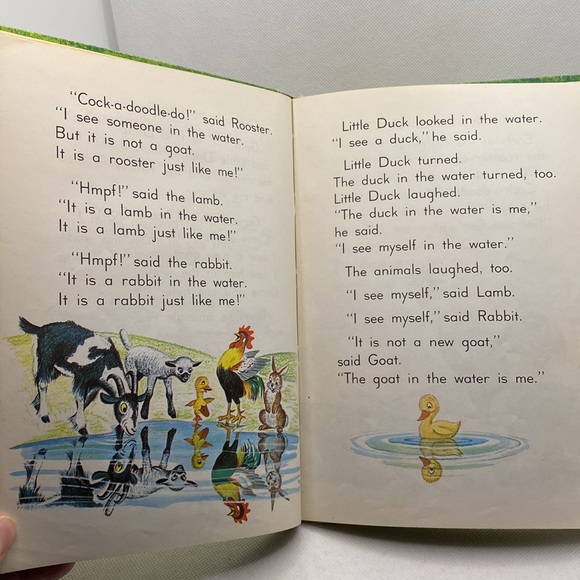 "Cock-a-doodle-do!" said Rooster.
"I see someone in the water.
But it is not a goat.
It is a rooster just like me!"
"Hmpf!" said the lamb.
"It is a lamb in the water.
It is a lamb just like me!"
"Hmpf!" said the rabbit.
"It is a rabbit in the water.
It is a rabbit just like me!"
Little Duck looked in the water.
"I see a duck," he said.
Little Duck turned.
The duck in the water turned, too.
Little Duck laughed.
"The duck in the water is me,"
he said.
"I see myself in the water."
The animals laughed, too.
"I see myself," said Lamb.
"I see myself," said Rabbit.
"It is not a new goat,"
said Goat.
"The goat in the water is me."